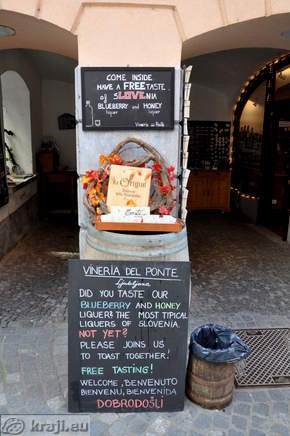 COME INSIDE
HAVE A FREE TASTE
of SLOVENIA
BLUEBERRY AND HONEY
liquer liquer
Vineria del Ponte
Origini
VINERIA DEL PONTE
Ljubljana
DID YOU TASTE OUR
BLUEBERRY AND HONEY
LIQUER? THE MOST TYPICAL
LIQUERS OF SLOVENIA.
NOT YET?
PLEASE JOINS US
TO TOAST TOGETHER!
FREE TASTING!
WELCOME, BENVENUTO
BIENVENU, BIENVENIDA
DOBRODOŠLI
© kraji.eu